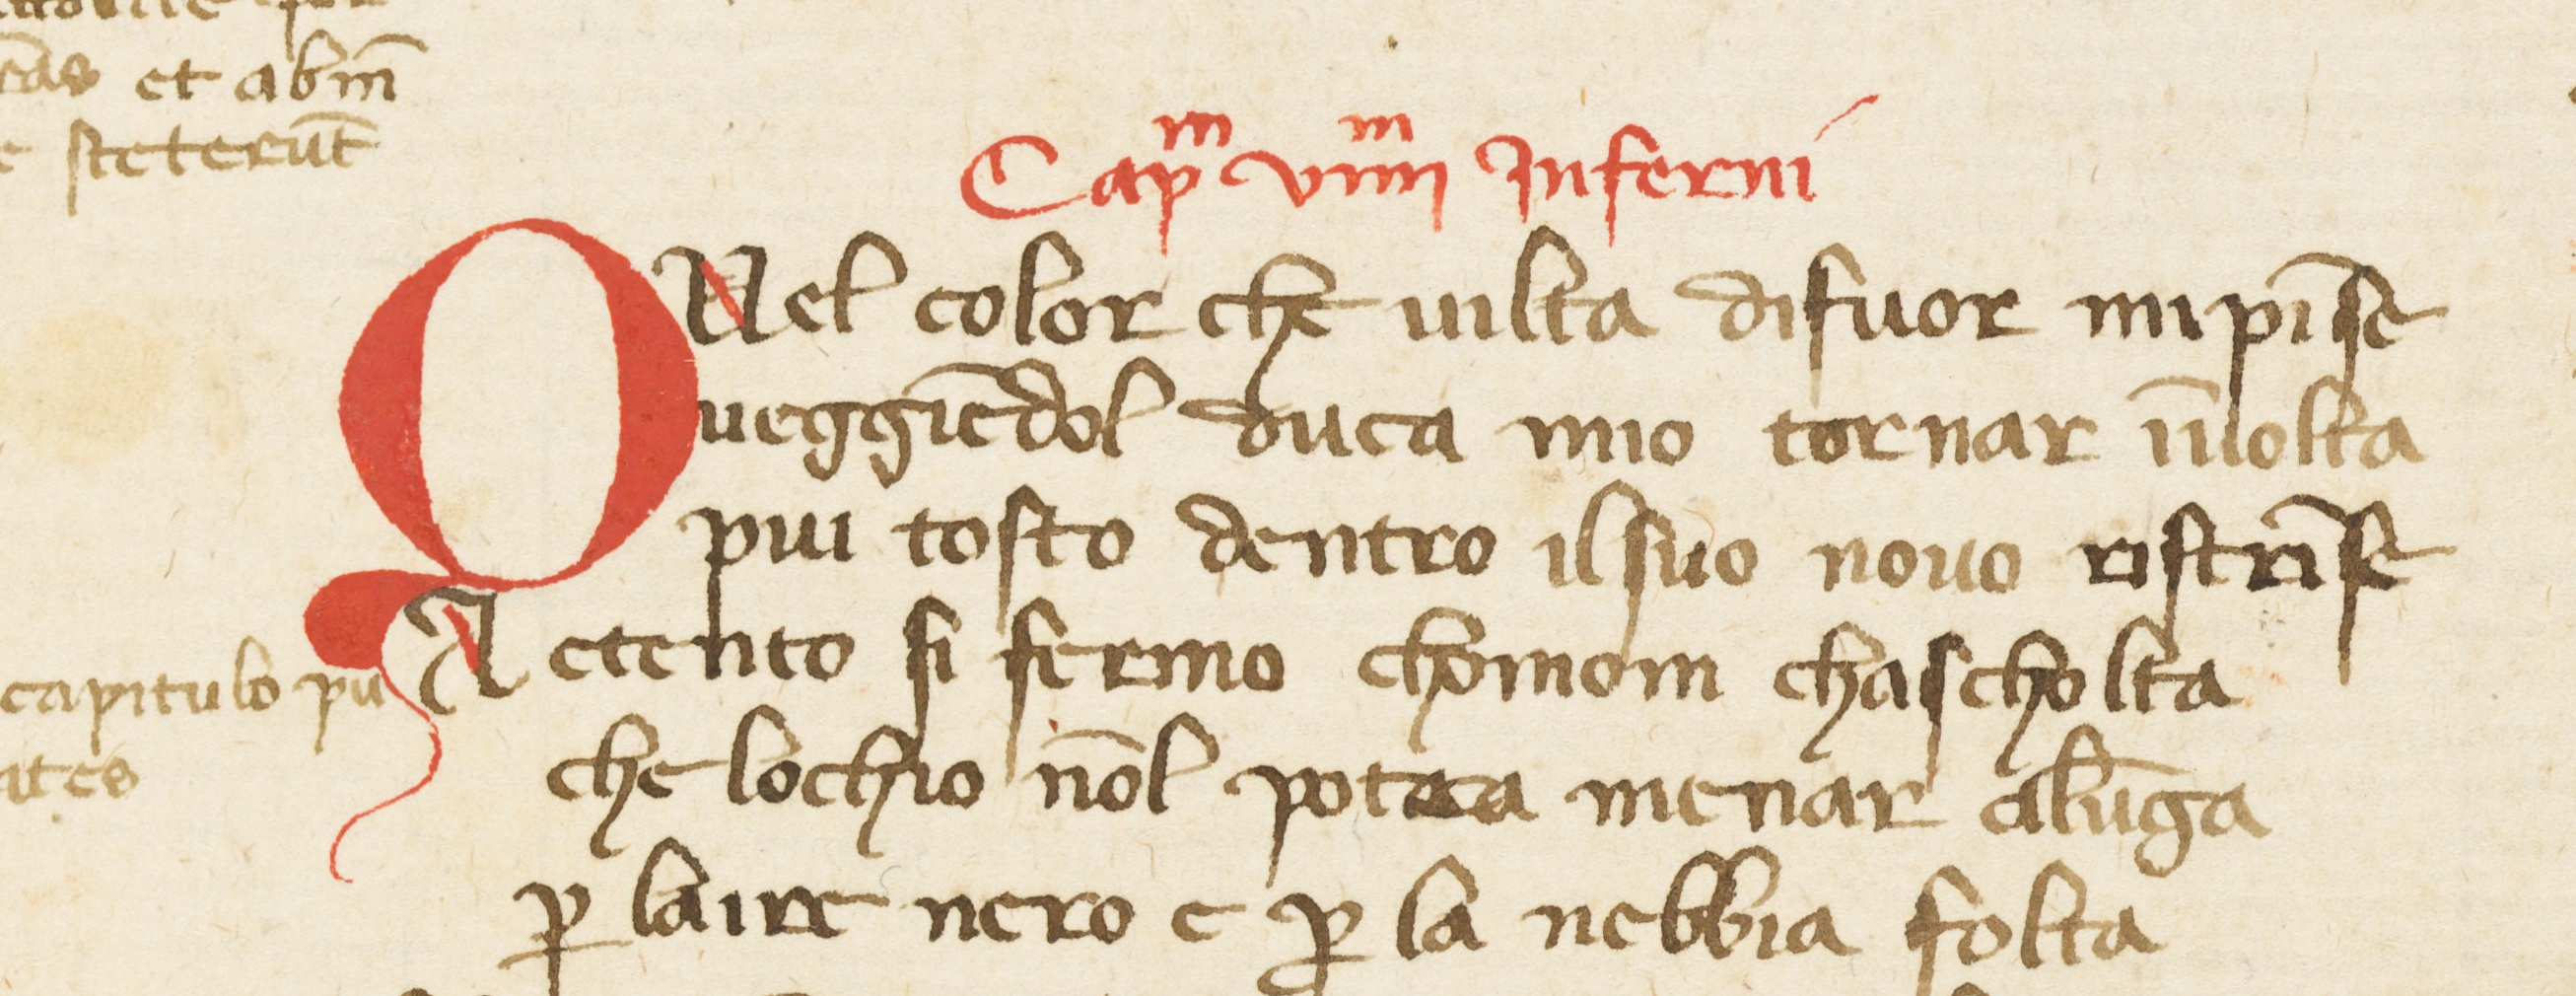 et abm̄
steterūt
Capᵐ viiiiᵐ Inferni
QVel color che uilta difuor mi pīse
ueggiēdol duca mio tornar īuolta
piu tosto dentro ilsuo nouo ristrīse
Actento si fermo chomom chascholta
che lochio nōl potea menar alūga
ꝑ laire nero e ꝑ la nebbia folta
capitulo pu
ites